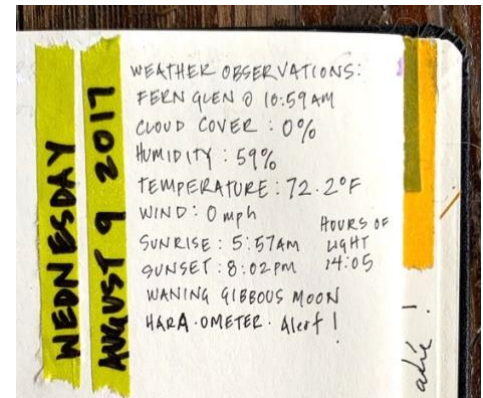 WEDNESDAY
AUGUST 9 2017
WEATHER OBSERVATIONS:
FERN GLEN @ 10:59 AM
CLOUD COVER : 0%
HUMIDITY : 59%
TEMPERATURE : 72.2°F
WIND : 0 mph
SUNRISE : 5:57AM
SUNSET : 8:02PM
HOURS OF
LIGHT
14:05
WANING GIBBOUS MOON
HARA·OMETER· Alert!